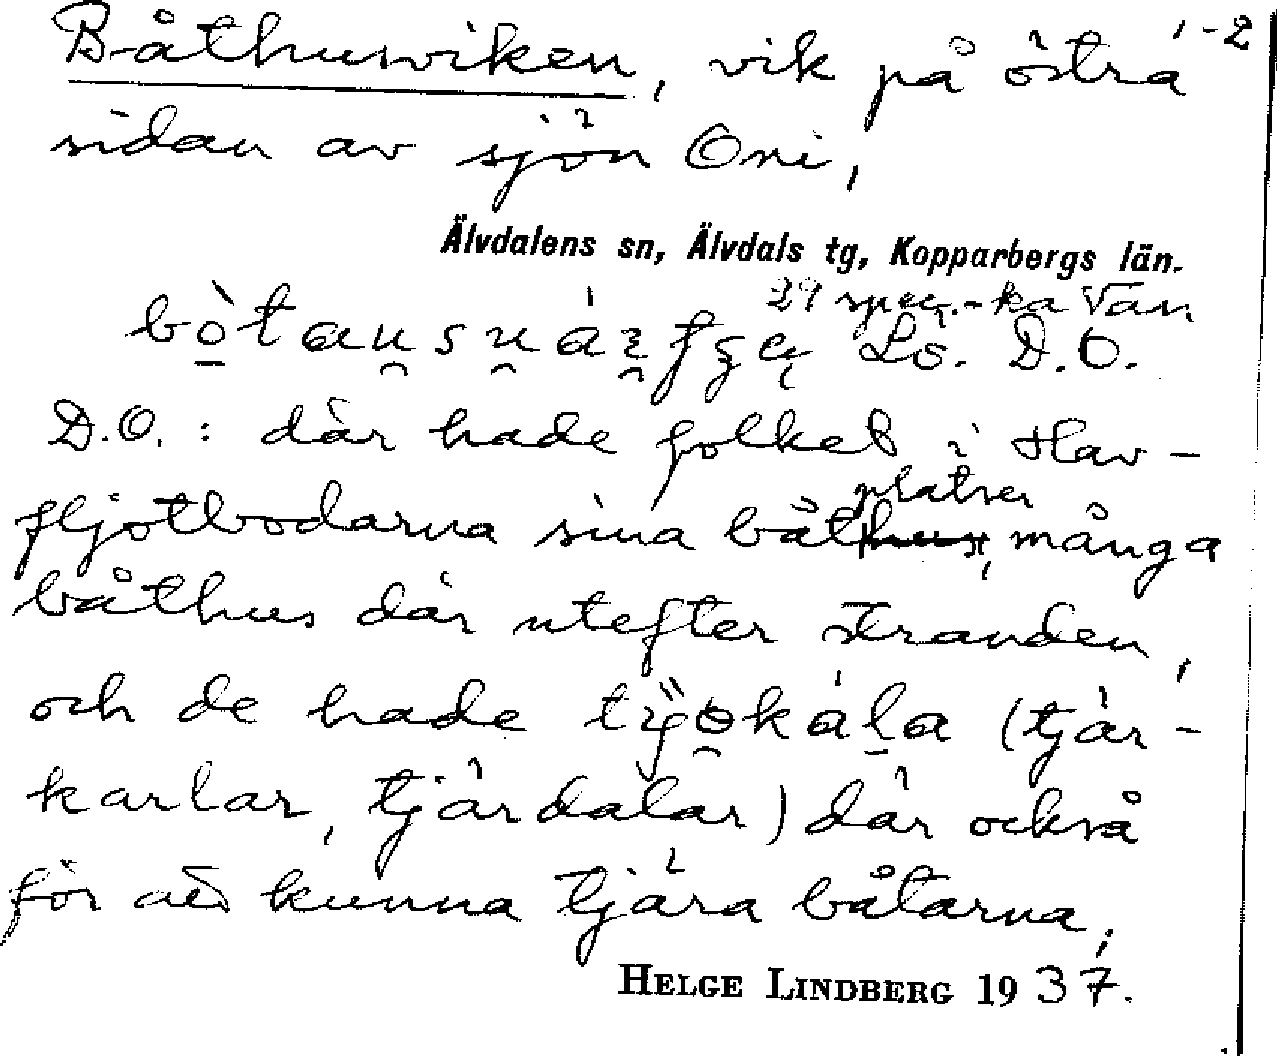 Båthusviken, vik på östra 1-2
sidan av sjön Oni,
Älvdalens sn, Älvdals tg, Kopparbergs län.
Lo. D.O.
D.O.: där hade folket i Hav-
fljotbodarna sina båthus, platser många
båthus där utefter stranden,
och de hade (tjär-
karlar, tjärdalar) där också
för att kunna tjära båtarna;
HELGE LINDBERG 1937.